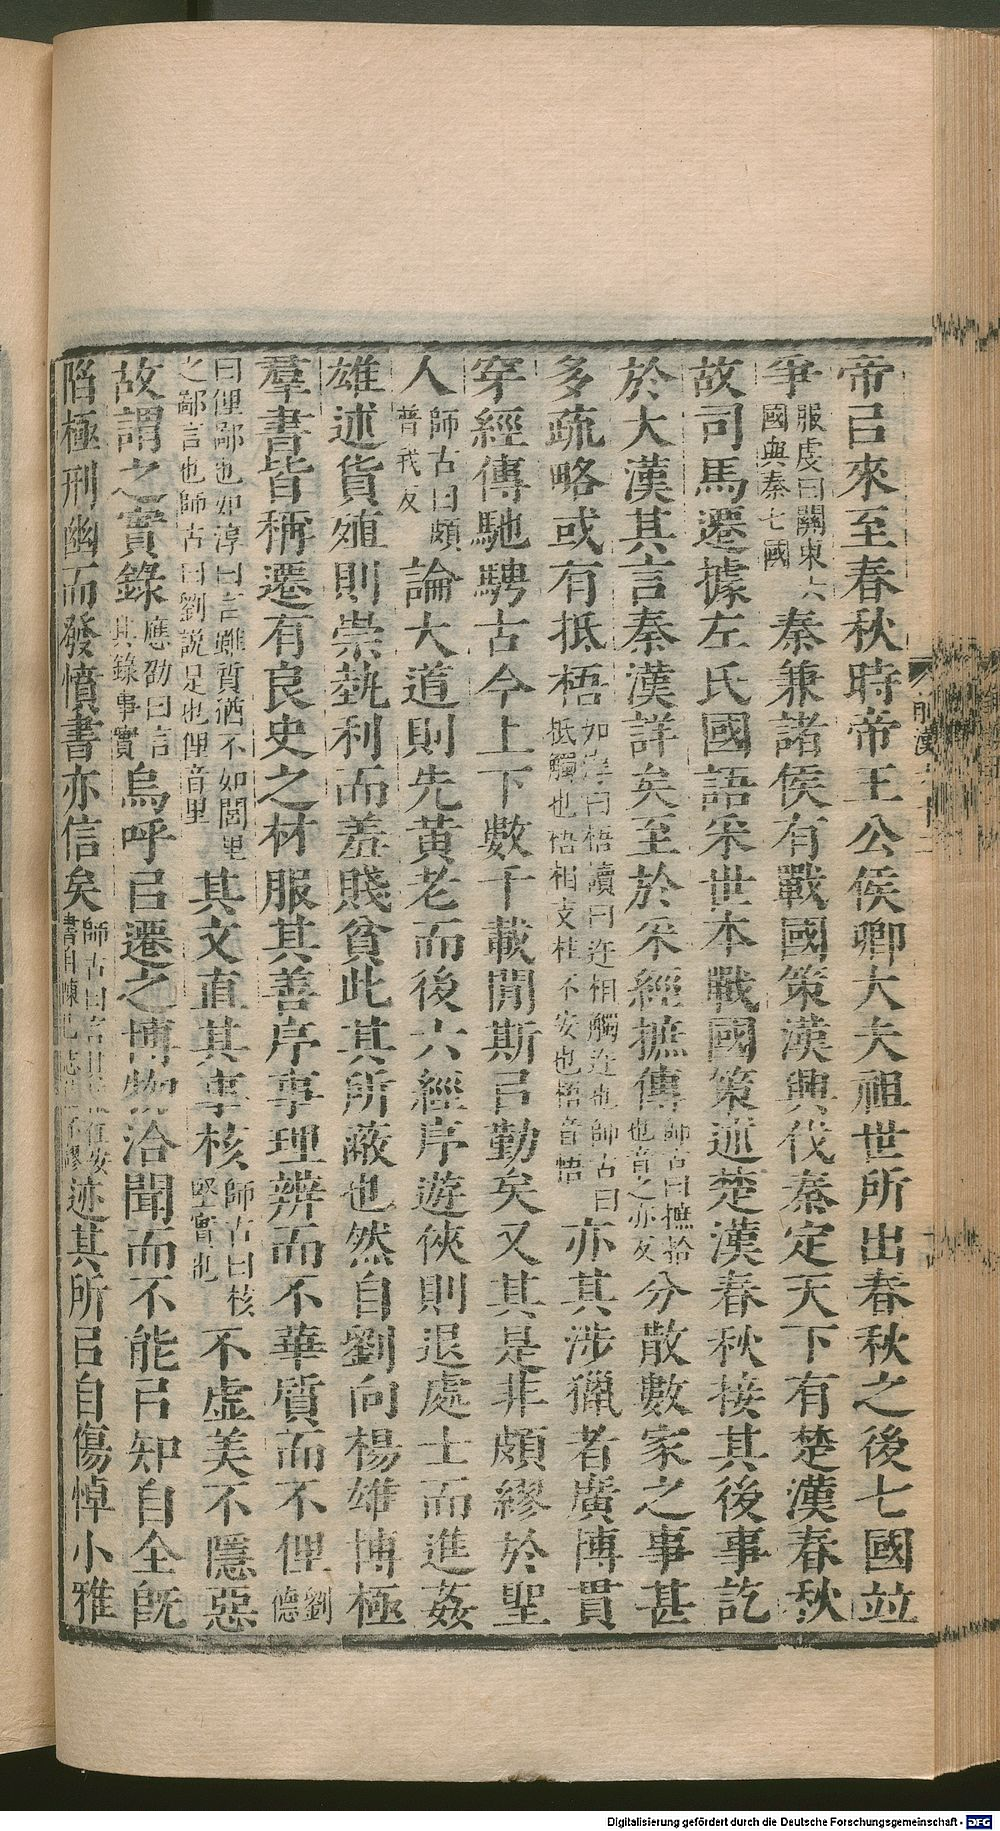 帝㠯來至春秋時帝王公侯卿大夫祖世所出春秋之後七國竝
爭服虔曰關東六國與秦七國秦兼諸侯有戰國策漢興伐秦定天下有楚漢春秋
故司馬遷據左氏國語采世本戰國策述楚漢春秋接其後事訖
於大漢其言秦漢詳矣至於采經摭傳師古曰摭拾也音之亦反分散數家之事甚
多疏略或有抵梧如淳曰梧讀曰迕相觸迕也師古曰抵觸也梧相支柱不安也梧音悟亦其涉獵者廣博貫
穿經傳馳騁古今上下數千載閒斯㠯勤矣又其是非頗繆於聖
人師古曰頗普我反論大道則先黃老而後六經序遊俠則退處士而進姦
雄述貨殖則崇埶利而羞賤貧此其所蔽也然自劉向楊雄博極
羣書皆稱遷有良史之材服其善序事理辨而不華質而不俚劉德
曰俚鄙也如淳曰言雖質猶不如閭里之鄙言也師古曰劉說是也俚音里其文直其事核師古曰核堅實也不虛美不隱惡
故謂之實錄應劭曰言其錄事實烏呼㠯遷之博物洽聞而不能㠯知自全旣
陷極刑幽而發憤書亦信矣師古曰書自陳己志不謬迹其所㠯自傷悼小雅
前漢
Digitalisierung gefördert durch die Deutsche Forschungsgemeinschaft - DFG